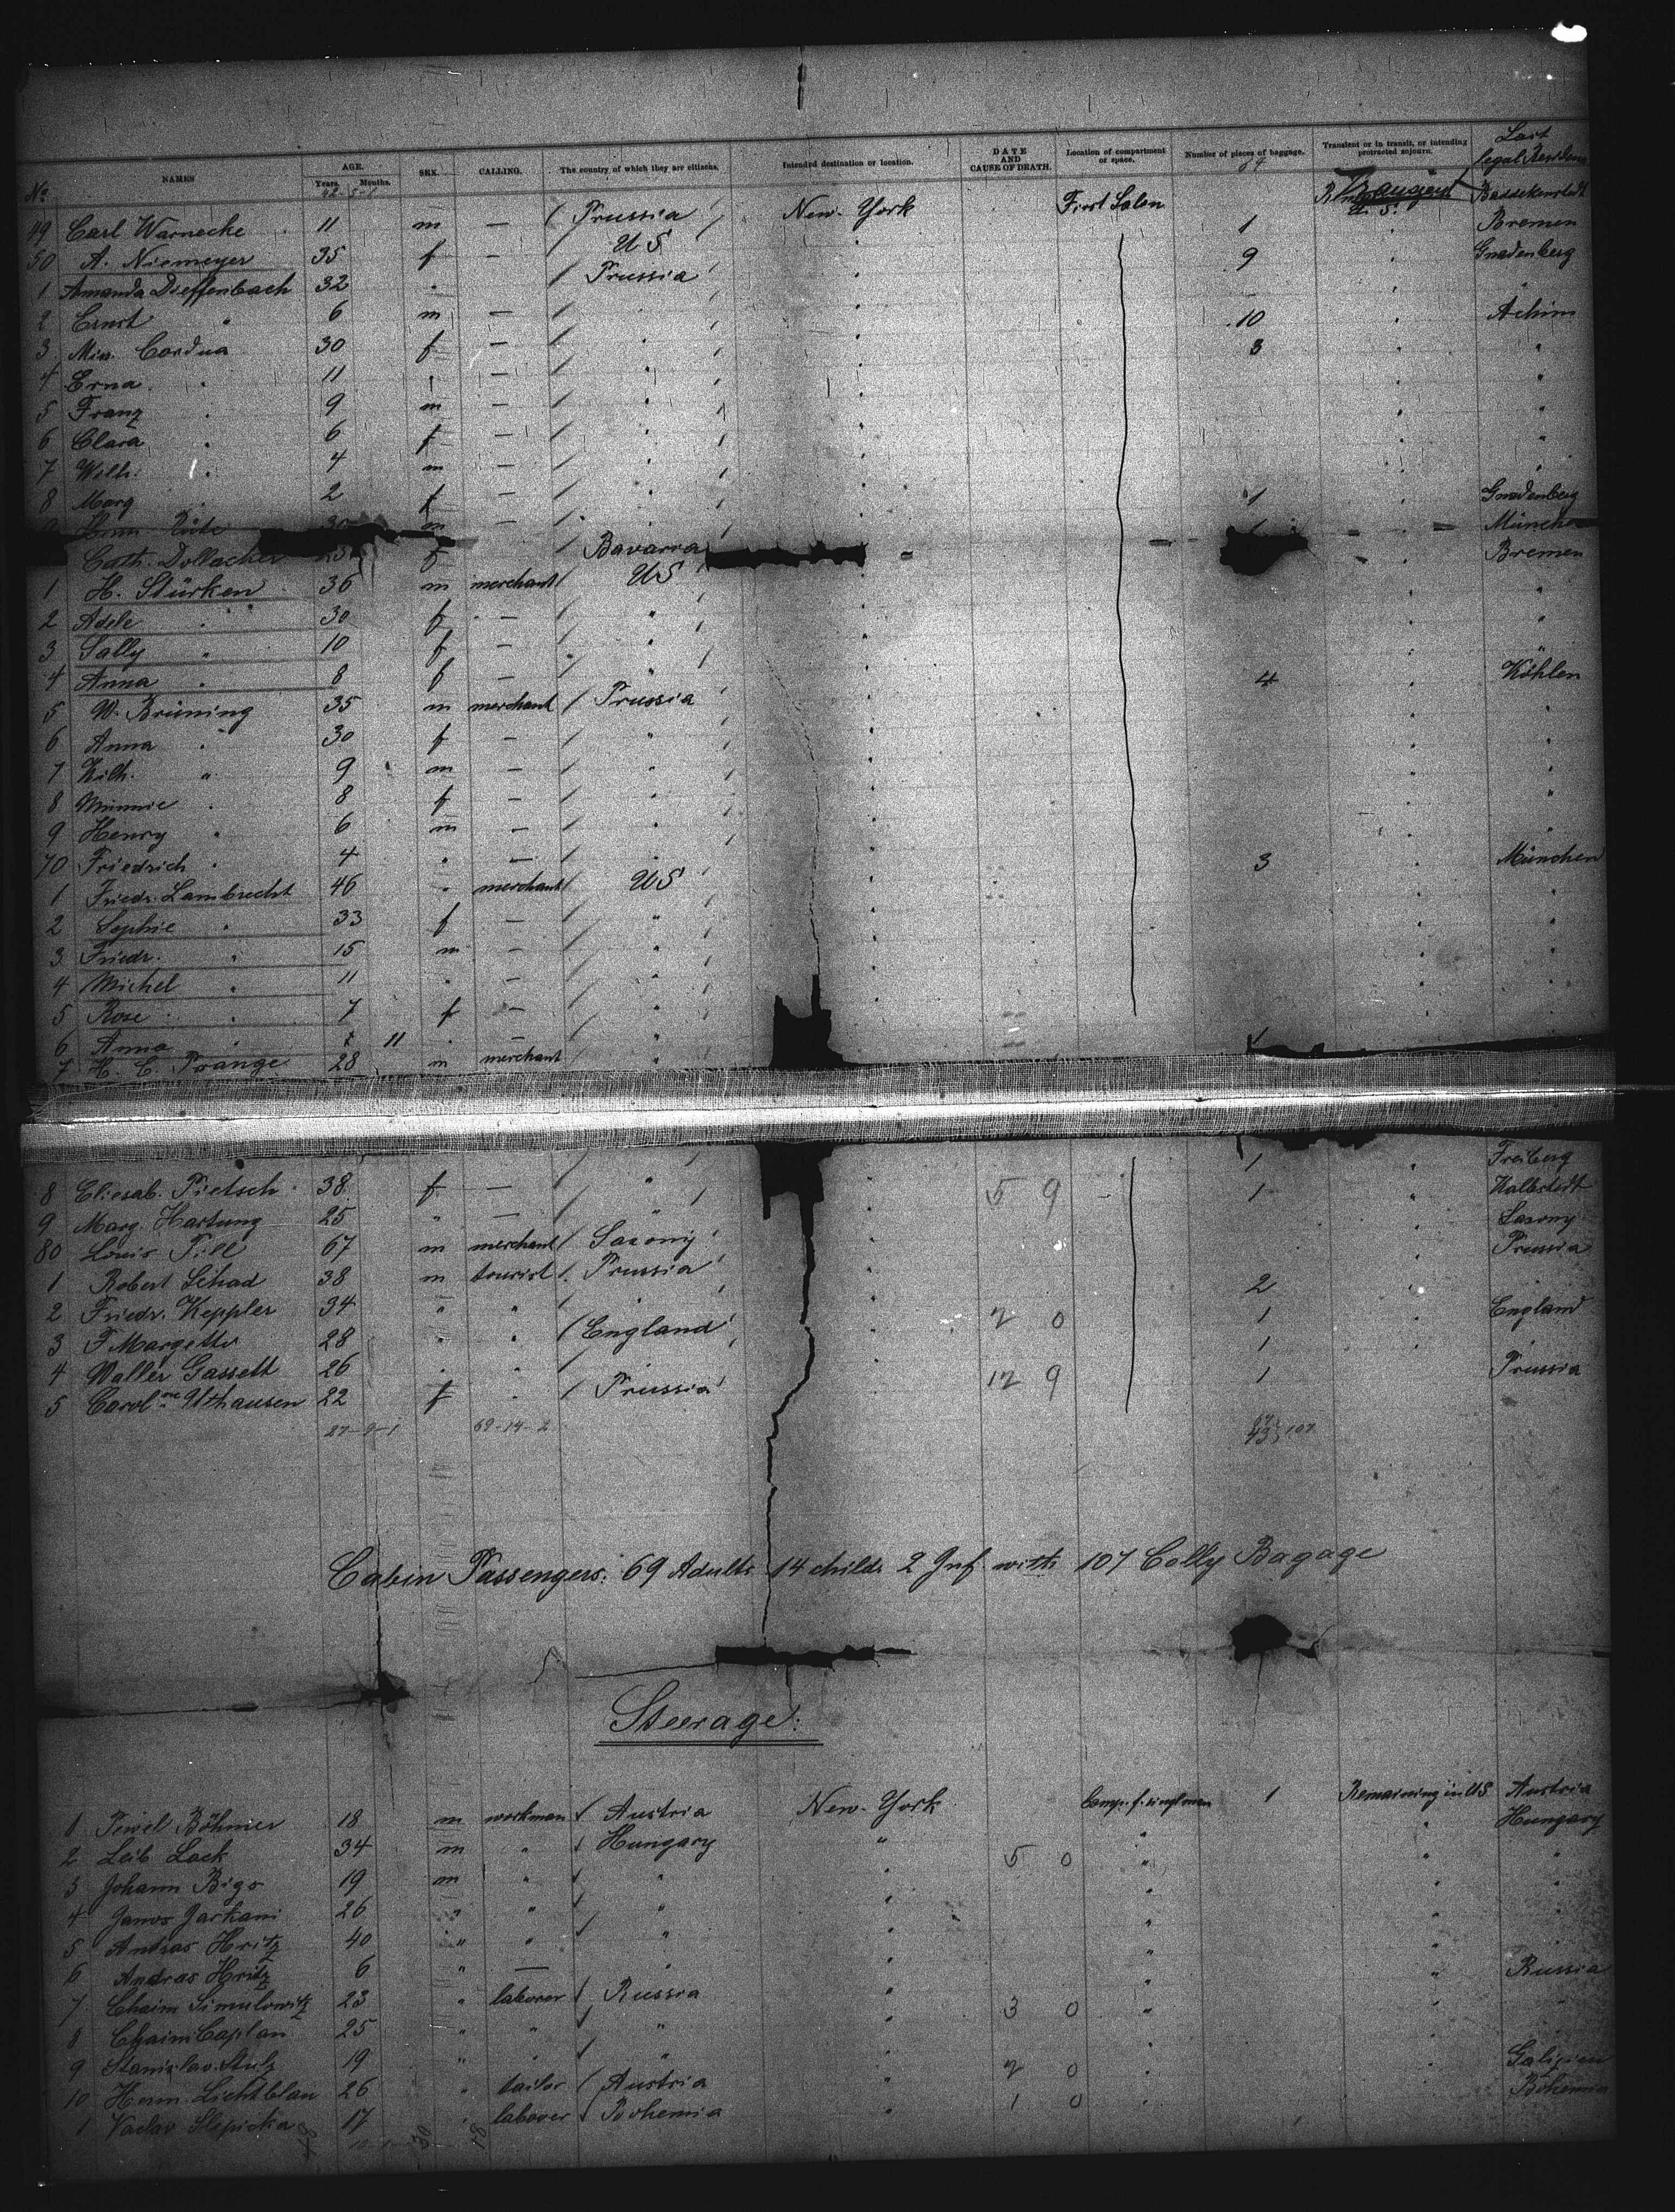 Last
legal Residence
No. NAMES AGE. Years. Months. SEX. CALLING. The country of which they are citizens. Intended destination or location. DATE AND CAUSE OF DEATH. Location of compartment or space. Number of pieces of baggage. Transient or in transit, or intending protracted sojourn.
42-5-1 64
49 Carl Warnecke 11 m — Prussia New-York First Salon 1
50 A. Niemeyer 35 f — U S 9 Bremen
1 Amanda Dieffenbach 32 " Prussia Gnadenberg
2 Ernst " 6 m — " "
3 Min. Cordua 30 f — " 10 Achim
4 Erna " 11 " — " 3 "
5 Franz " 9 m — " "
6 Clara " 6 f — " "
7 Wilh. " 4 m — " "
8 Marg " 2 f — " "
30 m — " 1 Gnadenberg
Cath. Dollacher f Bavaria München
1 H. Stürken 36 m merchant US Bremen
2 Adele " 30 f — " "
3 Sally " 10 f — " "
4 Anna " 8 f — " "
5 W. Brüning 35 m merchant Prussia 4 Köhlen
6 Anna " 30 f — " "
7 Wilh. " 9 m — " "
8 Minnie " 8 f — " "
9 Henry " 6 m — " "
70 Friedrich " 4 " — " "
1 Friedr. Lambrecht 46 " merchant US 3 München
2 Sophie " 33 f — " "
3 Friedr. " 15 m — " "
4 Michel " 11 " — " "
5 Rose " 7 f — " "
6 Anna " 11 " — "
7 H. C. Prange 28 m merchant "
8 Eliesab. Pietsch 38 f — " 5 9 1 Freiberg
9 Marg. Hartung 25 " — " 1 Kalbstedt
80 Louis Till 67 m merchant Saxony Saxony
1 Robert Schad 38 m tourist Prussia Prussia
2 Friedr. Keppler 34 " " " 2 0 2
3 F Margetts 28 " " England 1 England
4 Walter Gassett 26 " " " 12 9 1 "
5 Caroline Uthausen 22 f " Prussia 1 Prussia
27-9-1 69-14-2 64 43 107
Cabin Passengers: 69 Adults 14 childr. 2 Inf. with 107 Colly Bagage
Steerage:
1 Böhmer 18 m workman Austria New-York Comp. f. singl. men 1 Remaining in US Austria
2 Leib Lack 34 m " Hungary " 5 0 " " Hungary
3 Johann Bigo 19 m " " " " " "
4 Janos Jarkani 26 " " " " " " "
5 Andras Hritz 40 " " " " " " "
6 Andras Hritz 6 " — " " " " "
7 Chaim Simulowitz 23 " laborer Russia " 3 0 " " Russia
8 Chaim Caplan 25 " " " " " " "
9 Stanislav Stulz 19 " " " " 2 0 " "
10 Herm. Lichtblau 26 " tailor Austria " 1 0 " " Galizien
1 Vaclav Slepicka 17 " laborer Bohemia " " Bohemia